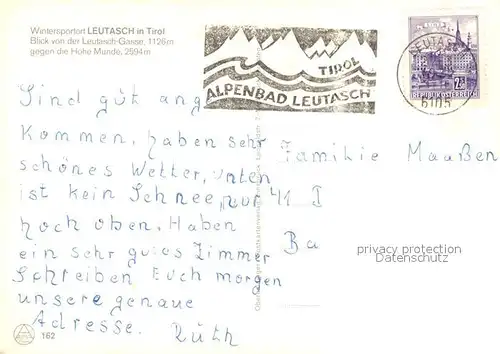 Wintersportort LEUTASCH in Tirol
Blick von der Leutasch-Gasse, 1126m
gegen die Hohe Munde, 2594m
TIROL
ALPENBAD LEUTASCH
LINZ
REPUBLIK ÖSTERREICH
6105
Sind gut ange
kommen, haben sehr
schönes Wetter, unten
ist kein Schnee, nur
hoch oben. Haben
ein sehr gutes Zimmer
Schreiben Euch morgen
unsere genaue
Adresse. Ruth
Familie Maaßen
41
Ba
privacy protection
Datenschutz
162